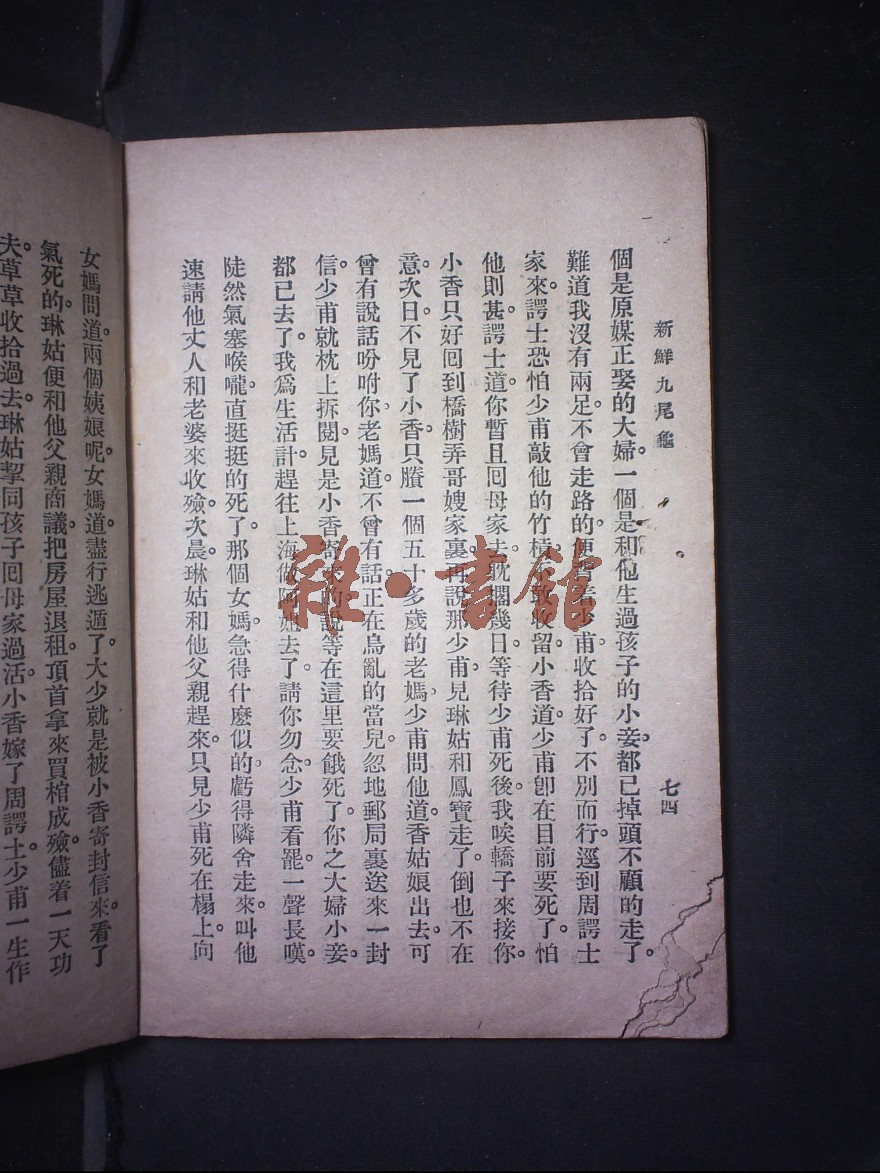 新鮮九尾龜
七四
個是原媒正娶的大婦。一個是和他生過孩子的小妾。都已掉頭不顧的走了。
難道我沒有兩足。不會走路的。便 着少甫收拾好了。不別而行。逕到周諤士
家來。諤士恐怕少甫敲他的竹槓。不敢收留。小香道。少甫卽在目前要死了。怕
他則甚。諤士道。你暫且囘母家去。躭擱幾日。等待少甫死後。我唉轎子來接你。
小香只好囘到橋樹弄哥嫂家裏。再說那少甫。見琳姑和鳳寶走了。倒也不在
意。次日。不見了小香。只賸一個五十多歲的老媽。少甫問他道。香姑娘出去。可
曾有說話吩咐你。老媽道。不曾有話。正在烏亂的當兒。忽地郵局裏送來一封
信。少甫就枕上拆閱。見是小香寄來的。說等在這里要餓死了。你之大婦小妾。
都已去了。我爲生活計。趕往上海做阿姐去了。請你勿念。少甫看罷。一聲長嘆。
陡然氣塞喉嚨。直挺挺的死了。那個女媽。急得什麼似的。虧得隣舍走來。叫他
速請他丈人和老婆來收殮。次晨。琳姑和他父親趕來。只見少甫死在榻上。向
女媽問道。兩個姨娘呢。女媽道。盡行逃遁了。大少就是被小香寄封信來。看了
氣死的。琳姑便和他父親商議。把房屋退租。頂首拿來買棺成殮。儘着一天功
夫。草草收拾過去。琳姑挈同孩子囘母家過活。小香嫁了周諤士。少甫一生作
雜·書館